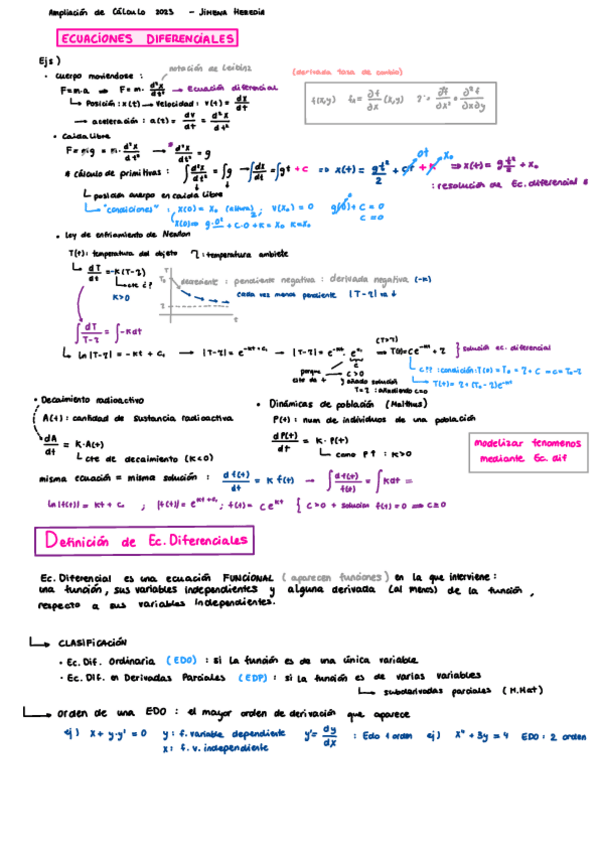 Ampliación de Cálculo 2023 - JIMENA HEREDIA
ECUACIONES DIFERENCIALES
Ejs)
notación de Leibniz
(derivada tasa de cambio)
• Cuerpo moviendose :
F=m.a ⇒ F = m. d²x/dt² → Ecuación diferencial
f(x,y) fx = ∂f/∂x (x,y)
↳ Posición : x(t) → Velocidad : v(t) = dx/dt
→ aceleración : a(t) = dv/dt = d²x/dt²
• Caida libre
F = m·g = m. d²x/dt² → d²x/dt² = g
* Cálculo de primitivas : ∫d²x/dt² = ∫g → ∫dx/dt = ∫gt + c ⇒ x(t) = gt²/2 + ct + k ⇒ x(t) = g t²/2 + x₀
: resolución de Ec. diferencial
↳ posición cuerpo en caida libre
↳ "condiciones" : x(0) = x₀ (altura) ; v(x₀) = 0 g(0) + c = 0
c = 0
x(0) = g·0²/2 + c·0 + k = x₀ k=x₀
• Ley de enfriamiento de Newton
T(t) : temperatura del objeto τ : temperatura ambiete
↳ dT/dt = -k(T-τ)
↳ cte ¿?
k>0
decreciente : pendiente negativa : derivada negativa (-k)
cada vez menos pendiente |T-τ| va ↓
∫ dT/T-τ = ∫-kdt
(T>τ)
↳ ln|T-τ| = -kt + c₀ → |T-τ| = e^-kt+c₀ → |T-τ| = e^-kt · e^c₀ ⇒ T(t) = ce^-kt + τ } solución ec. diferencial
c>0
↳ c?? : condición : T(0) = T₀ = τ + c ⇒ c = T₀-τ
↳ T(t) = τ + (T₀-τ)e^-kt
porque
añado solución
T=τ : añadiendo c=0
• Decaimiento radioactivo
• Dinámicas de población (Malthus)
A(t) : cantidad de sustancia radioactiva
P(t) : num de individuos de una población
dA/dt = K·A(t)
dP(t)/dt = K · P(t)
↳ cte de decaimiento (K<0)
↳ como P↑ : K>0
modelizar fenomenos
mediante Ec. dif
misma ecuación = misma solución : df(t)/dt = k f(t) → ∫ df(t)/f(t) = ∫kdt =
ln|f(t)| = kt + c₀ ; |f(t)| = e^kt+c₀ ; f(t) = ce^kt { c>0 + solucion f(t)=0 ⇒ c≥0
Definición de Ec. Diferenciales
Ec. Diferencial es una ecuación FUNCIONAL (aparecen funciones) en la que interviene :
una función, sus variables independientes y alguna derivada (al menos) de la función,
respecto a sus variables independientes.
↳ CLASIFICACIÓN
• Ec. Dif. Ordinaria (EDO) : si la función es de una única variable
• Ec. Dif. en Derivadas Parciales (EDP) : si la función es de varias variables
↳ subderivadas parciales (M.Mat)
↳ Orden de una EDO : el mayor orden de derivación que aparece
ej) x + y·y' = 0 y : f. variable dependiente y' = dy/dx : Edo 1 orden ej) x'' + 3y = 4 EDO : 2 orden
x : f. v. independiente